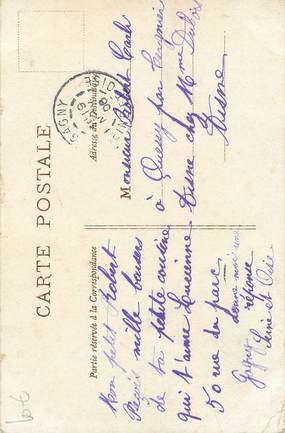 CARTE POSTALE
Partie réservée à la Correspondance
Adresse du Destinataire
Mon petit Robert
Reçois mille baisers
de ta petite cousine
qui t'aime Lucienne
50 rue du parc
donne moi une
réponse
Gagny
Seine et Oise
GAGNY
Monsieur Robert
à Quessy par Tergnier
Aisne chez Mme Dubois
Aisne